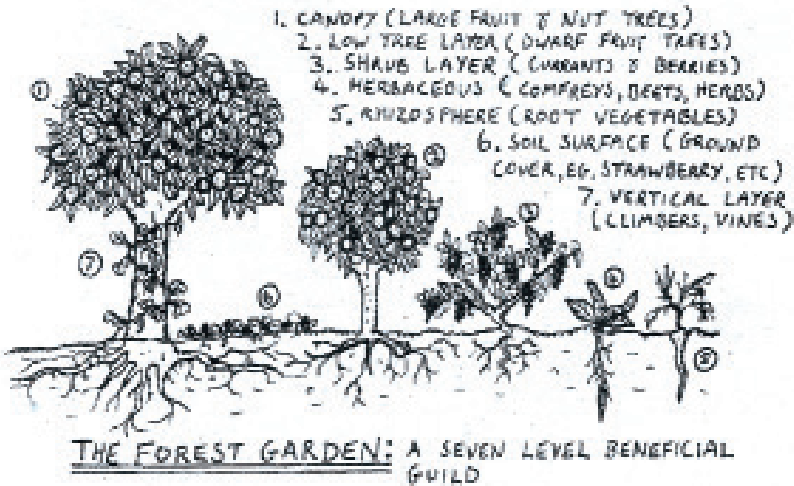 1. CANOPY (LARGE FRUIT & NUT TREES)
2. LOW TREE LAYER (DWARF FRUIT TREES)
3. SHRUB LAYER (CURRANTS & BERRIES)
4. HERBACEOUS (COMFREYS, BEETS, HERBS)
5. RHIZOSPHERE (ROOT VEGETABLES)
6. SOIL SURFACE (GROUND
COVER, EG, STRAWBERRY, ETC)
7. VERTICAL LAYER
(CLIMBERS, VINES)
1
7
6
THE FOREST GARDEN: A SEVEN LEVEL BENEFICIAL
GUILD